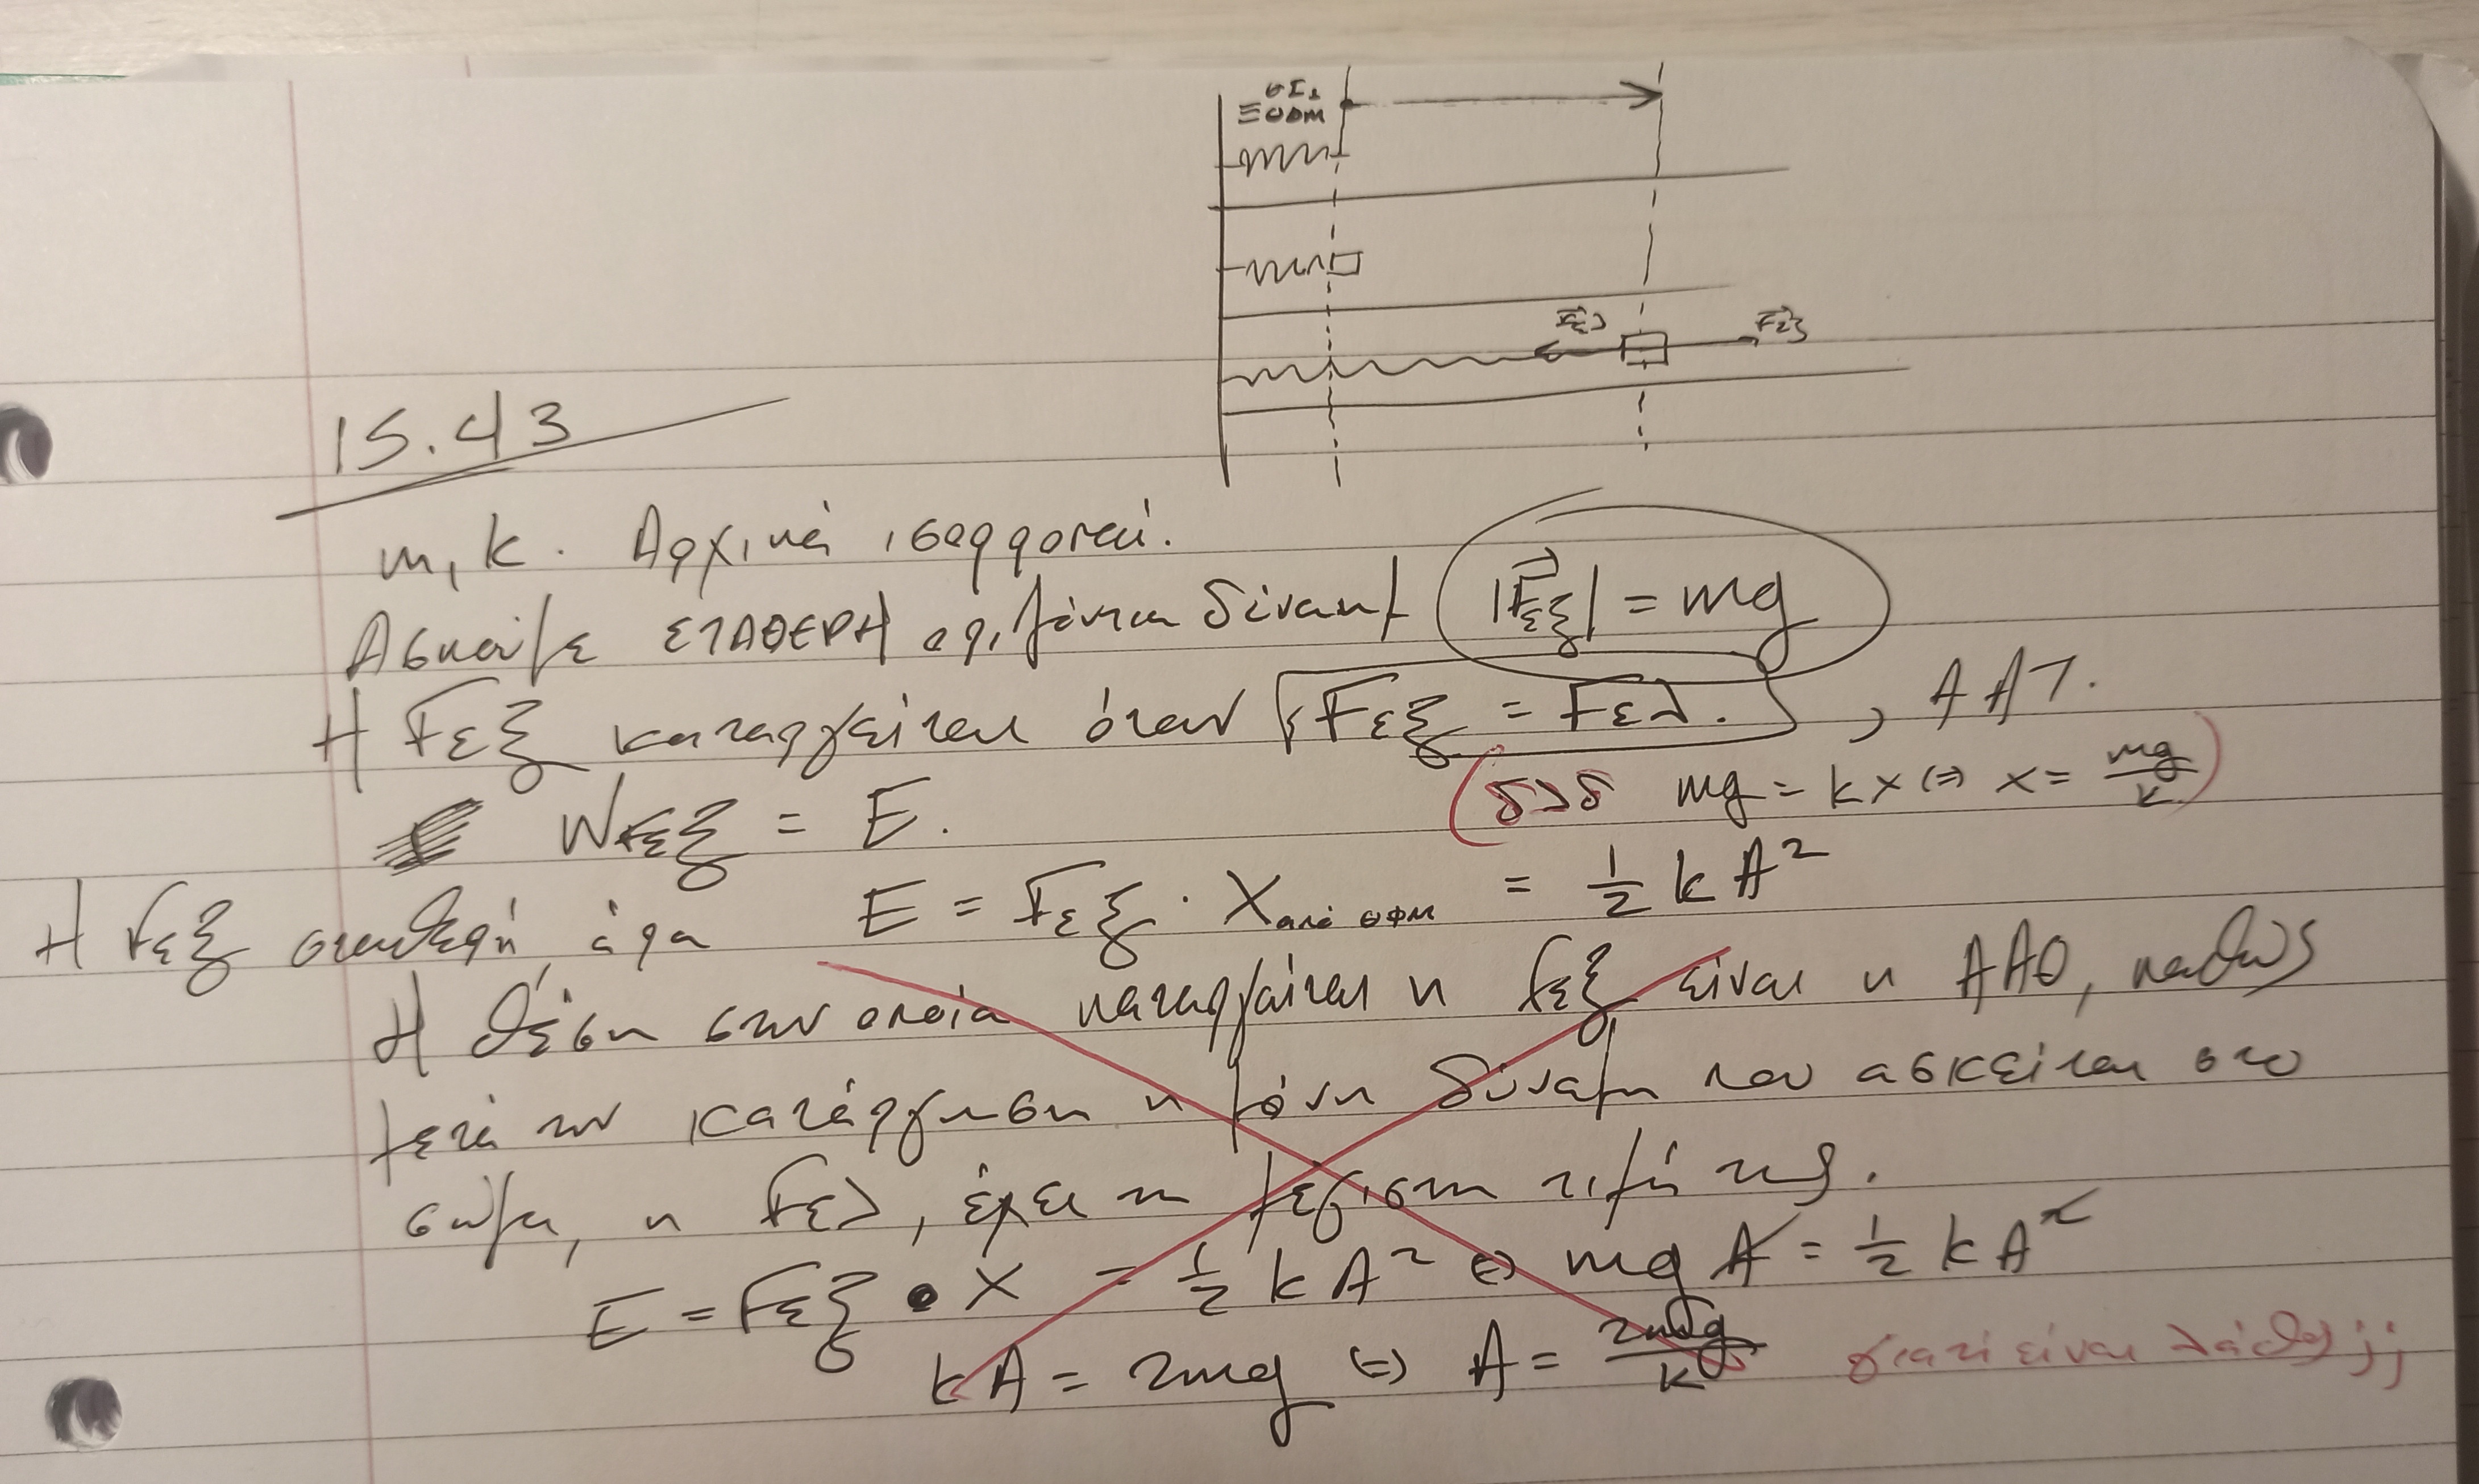 ΘΙ1
≡ΘΦΜ
Fελ Fεξ
15.43
m, k. Αρχικά ισορροπεί.
Ασκούμε ΣΤΑΘΕΡΗ οριζόντια δύναμη |Fεξ| = mg
Η Fεξ καταργείται όταν Fεξ = Fελ. , ΑΑΤ.
(δλδ mg = kx ⇔ x = mg/k)
WFεξ = E.
Η Fεξ σταθερή, άρα E = Fεξ · Xαπό ΘΦΜ = 1/2 k A²
Η θέση στην οποία καταργείται η Fεξ είναι η ΑΑΘ, καθώς
μετά την κατάργηση η μόνη δύναμη που ασκείται στο
σώμα, η Fελ, έχει τη μέγιστη τιμή της.
E = Fεξ · x = 1/2 k A² ⇔ mg A = 1/2 k A²
kA = 2mg ⇔ A = 2mg/k γιατί είναι λάθος;;